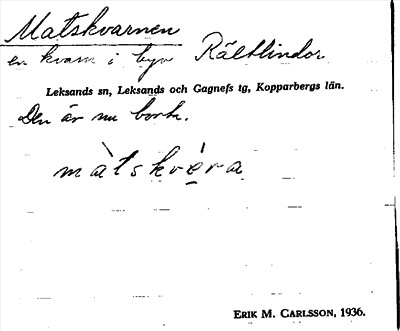 Matskvarnen
en kvarn i byn Rältlindor
Leksands sn, Leksands och Gagnefs tg, Kopparbergs län.
Den är nu borta.
màtskvę́ra
ERIK M. CARLSSON, 1936.